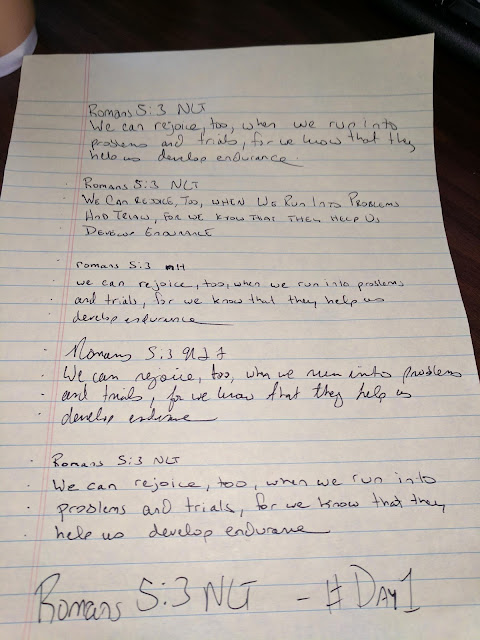 Romans 5:3 NLT
We can rejoice, too, when we run into
problems and trials, for we know that they
help us develop endurance.
Romans 5:3 NLT
WE CAN REJOICE, TOO, WHEN WE RUN INTO PROBLEMS
AND TRIALS, FOR WE KNOW THAT THEY HELP US
DEVELOP ENDURANCE
romans 5:3
we can rejoice, too, when we run into problems
and trials, for we know that they help us
develop endurance
Romans 5:3
We can rejoice, too, when we run into problems
and trials, for we know that they help us
develop
Romans 5:3 NLT
We can rejoice, too, when we run into
problems and trials, for we know that they
help us develop endurance
Romans 5:3 NLT - #DAY1